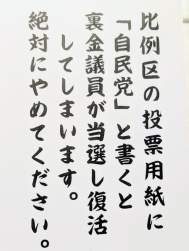 比例区の投票用紙に
「自民党」と書くと
裏金議員が当選し復活
してしまいます。
絶対にやめてください。